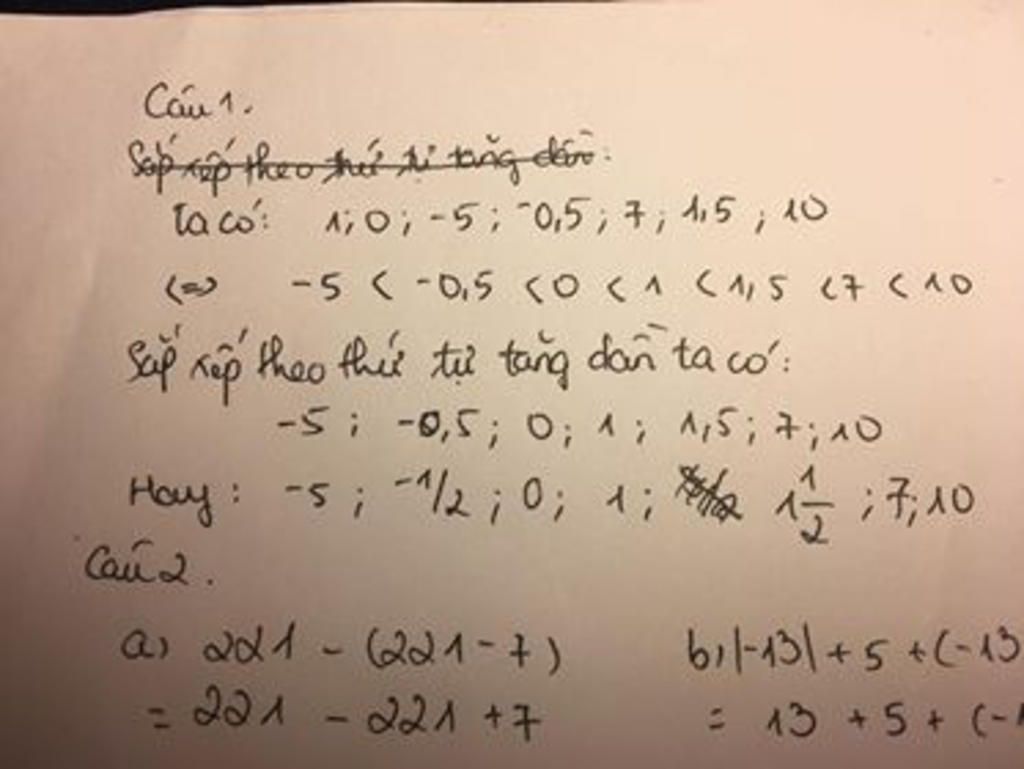 Câu 1.
Sắp xếp theo thứ tự tăng dần:
Ta có: 1; 0; -5; -0,5; 7; 1,5; 10
<=> -5 < -0,5 < 0 < 1 < 1,5 < 7 < 10
Sắp xếp theo thứ tự tăng dần ta có:
-5; -0,5; 0; 1; 1,5; 7; 10
Hay: -5; -1/2; 0; 1; 1 1/2; 7; 10
Câu 2.
a) 221 - (221 - 7) b) |-13| + 5 + (-13
= 221 - 221 + 7 = 13 + 5 + (-1